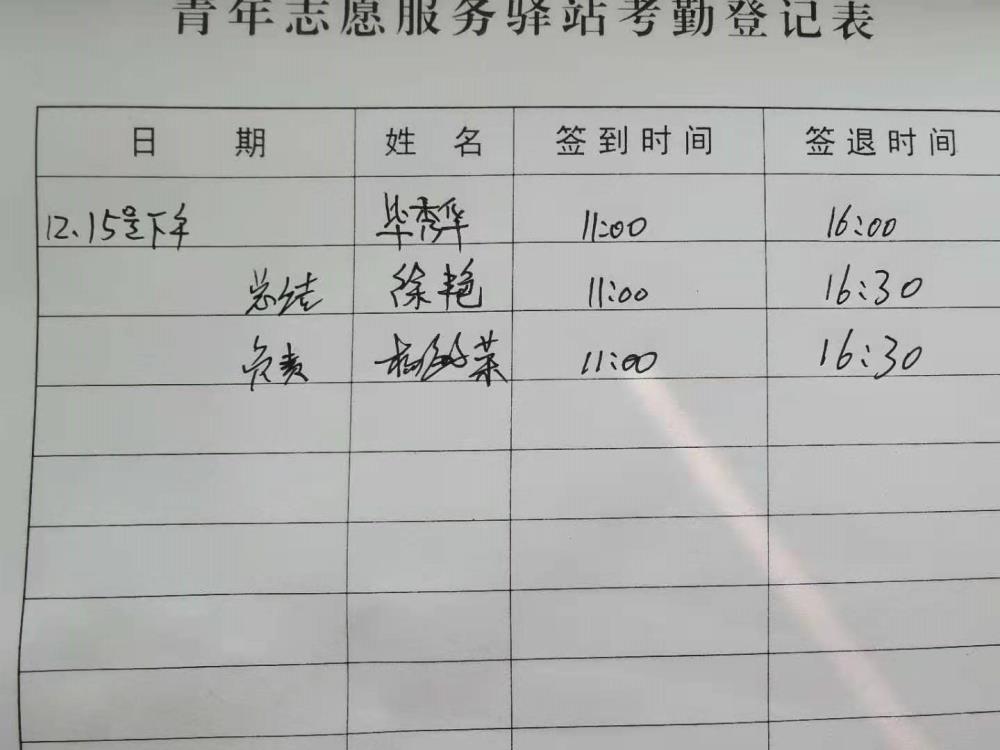 青年志愿服务驿站考勤登记表
日 期 姓 名 签到时间 签退时间
12.15号下午 毕秀华 11:00 16:00
总结 徐艳 11:00 16:30
负责 杨 荣 11:00 16:30